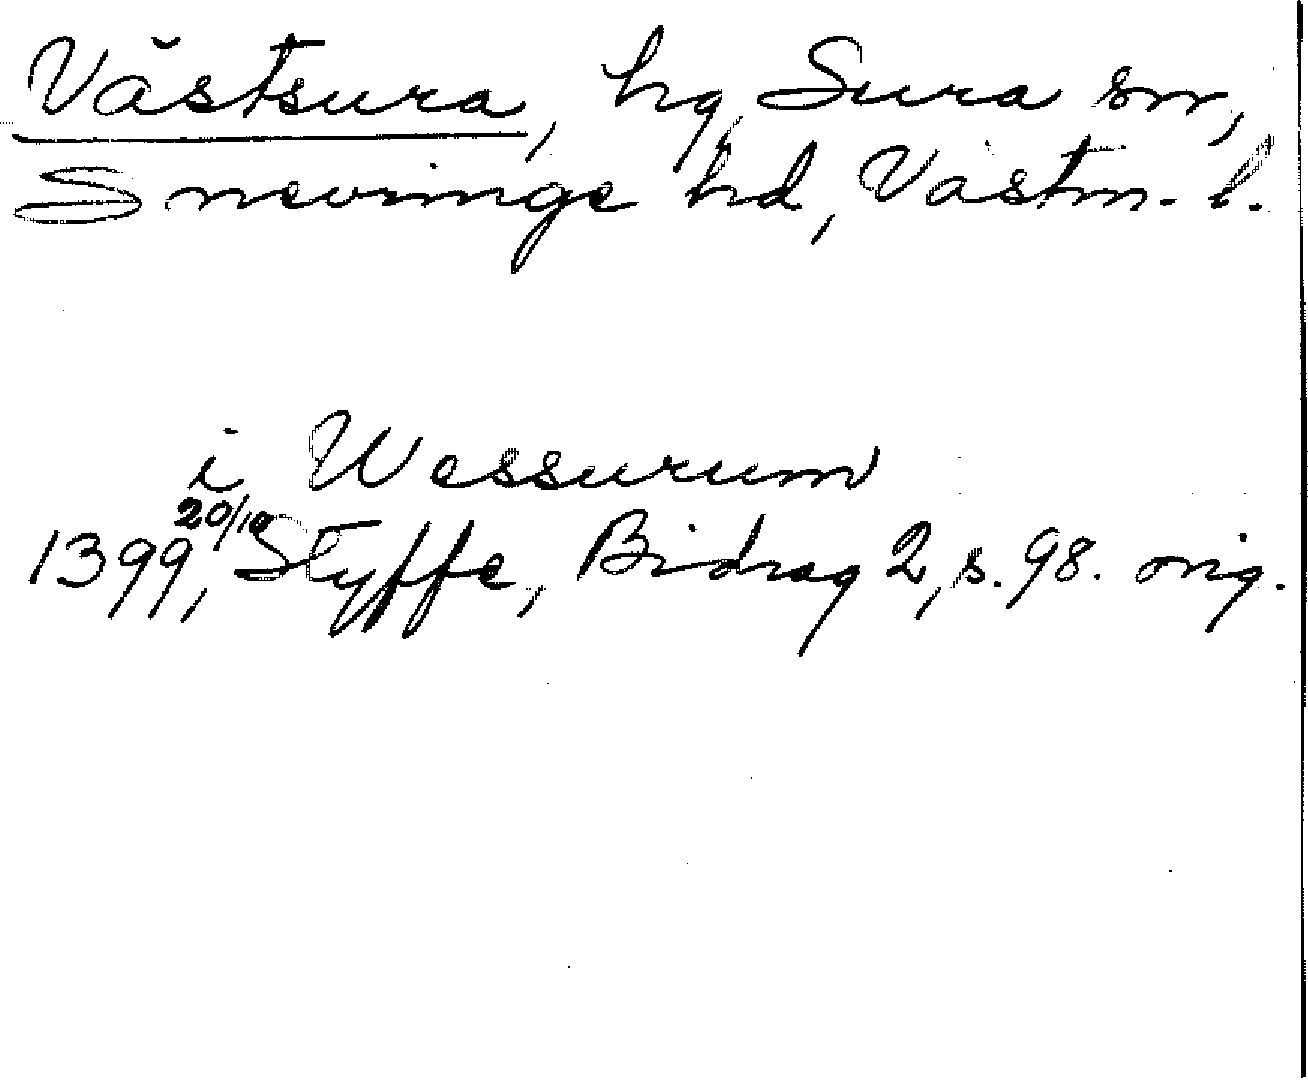 Västsura, hg, Sura sn,
Snevringe hd, Västm. l.
i Wessurum
1399 20/10, Styffe, Bidrag 2, s. 98. orig.